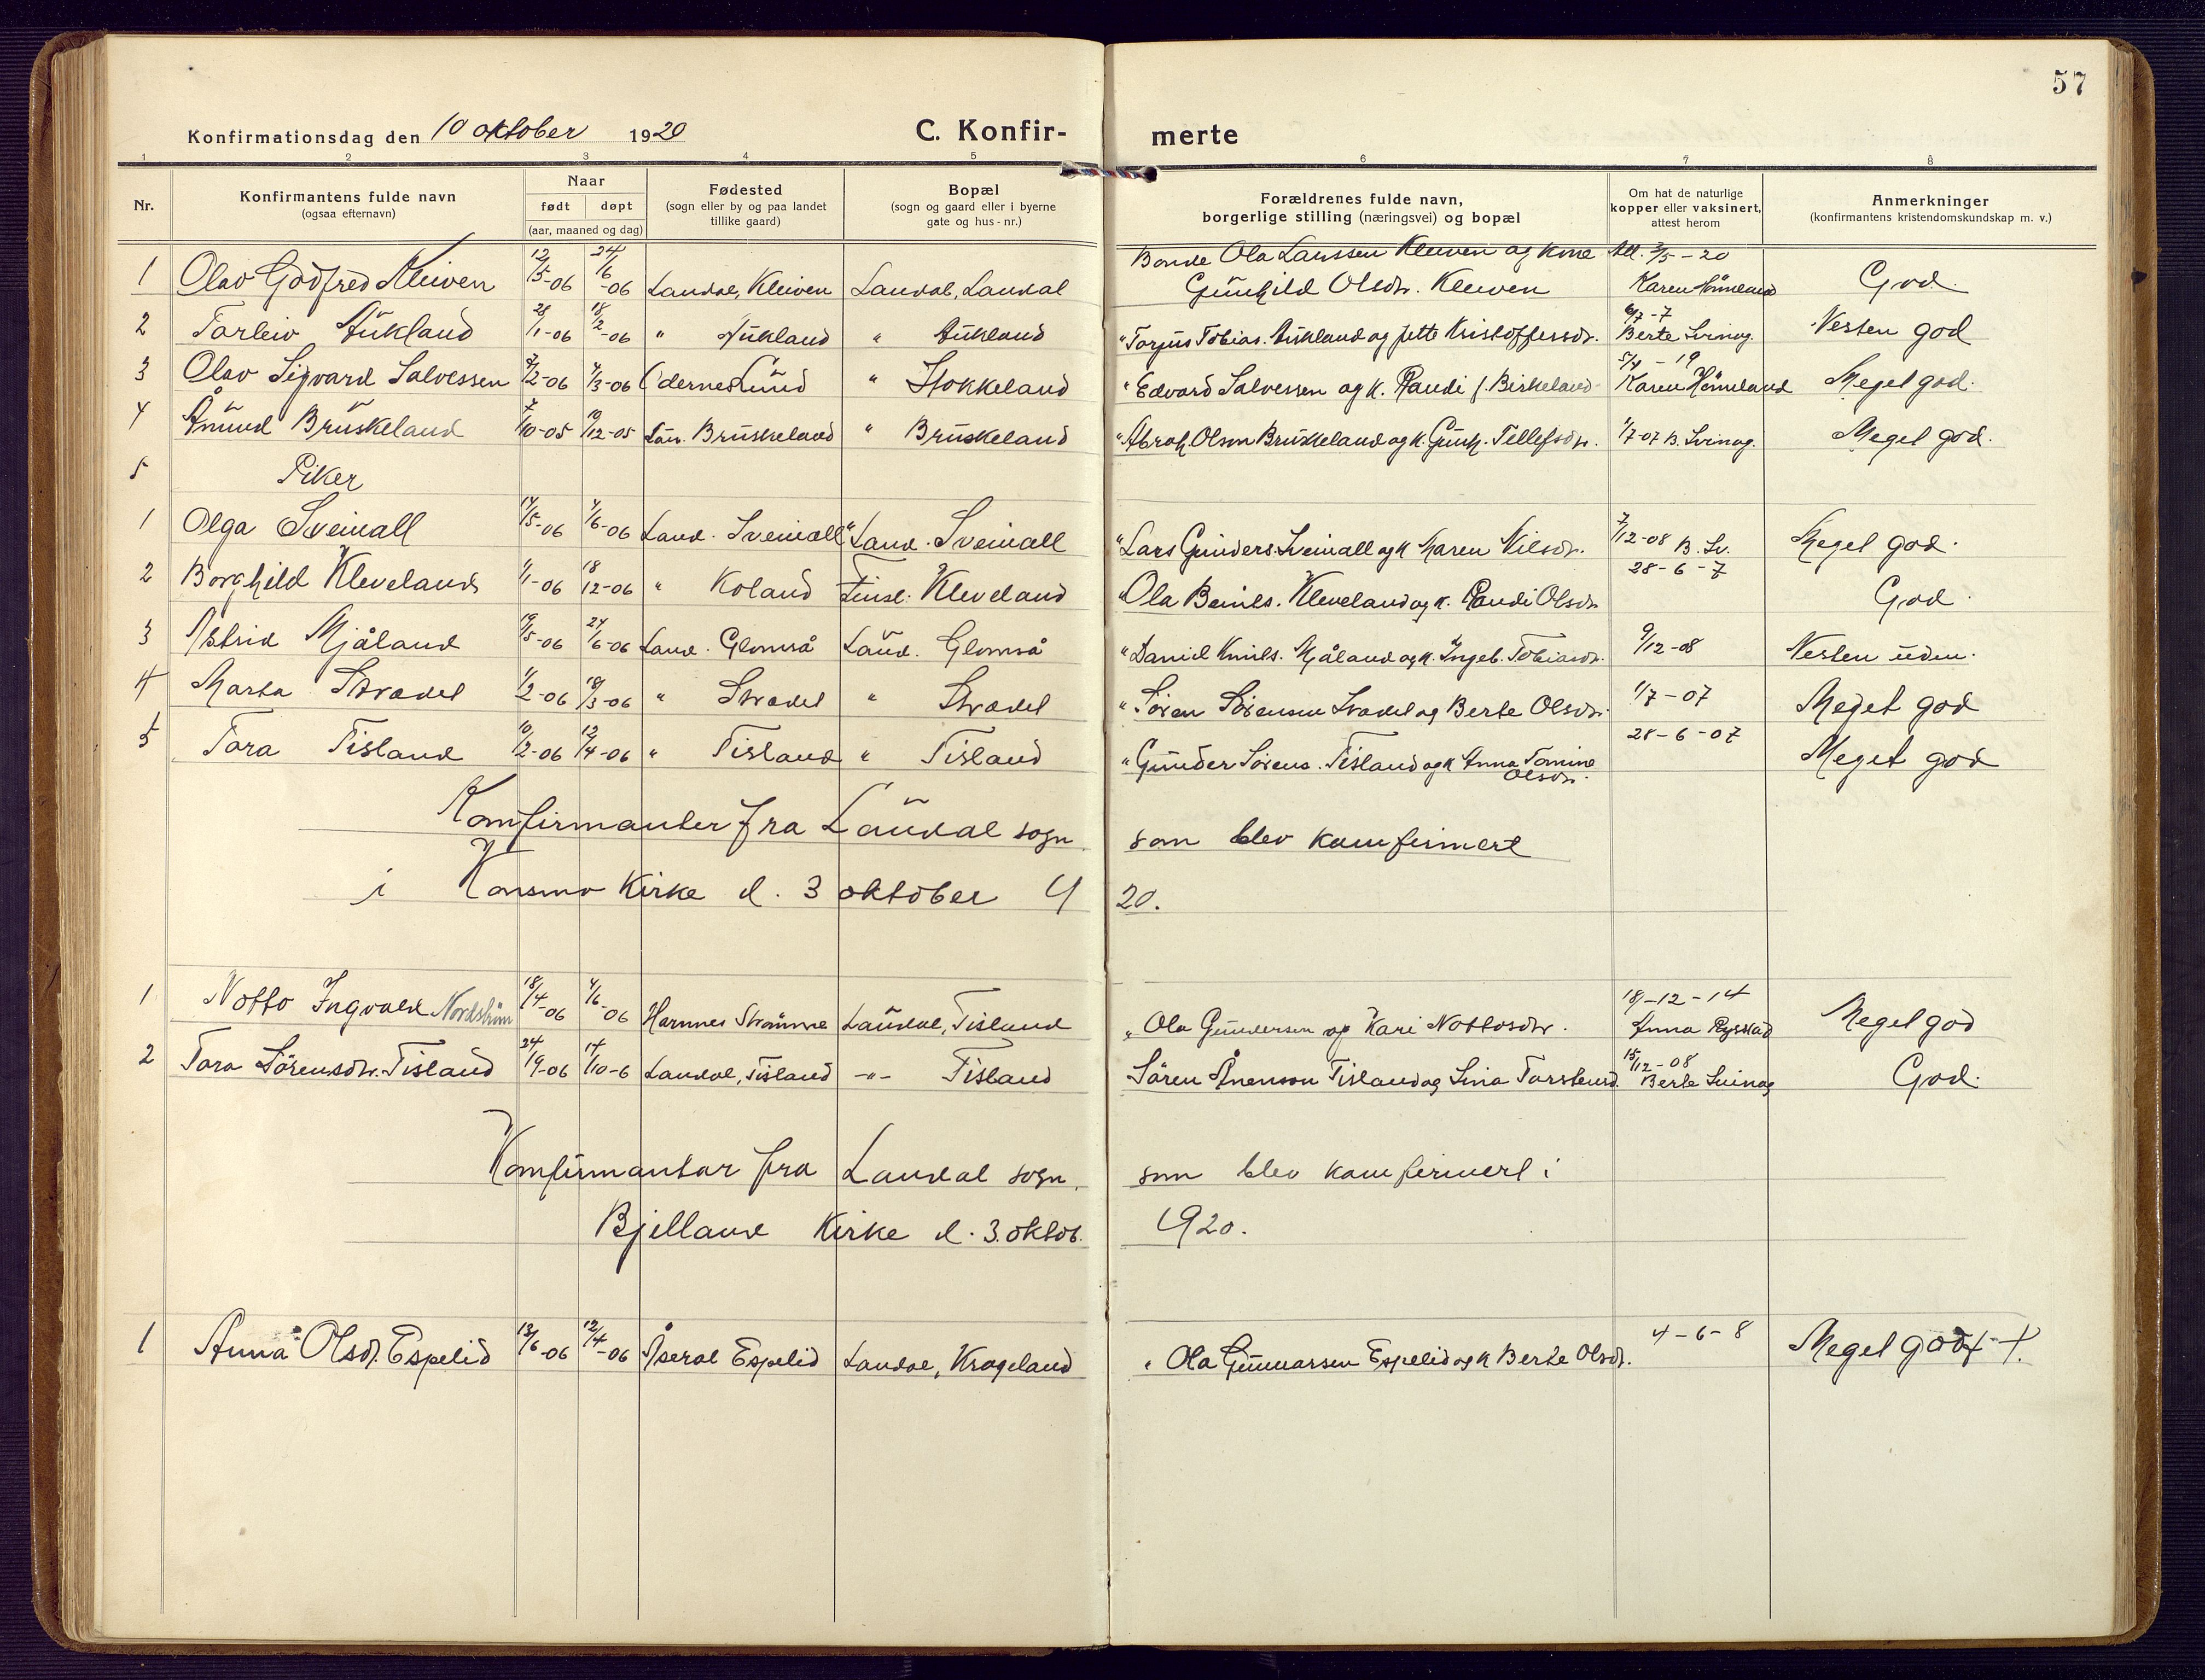 57
Konfirmationsdag den 10 oktober 1920 C. Konfir- merte
1 2 3 4 5 6 7 8
Nr. Konfirmantens fulde navn (ogsaa efternavn) Naar født døpt (aar, maaned og dag) Fødested (sogn eller by og paa landet tillike gaard) Bopæl (sogn og gaard eller i byerne gate og hus-nr.) Forældrenes fulde navn, borgerlige stilling (næringsvei) og bopæl Om hat de naturlige kopper eller vaksinert, attest herom Anmerkninger (konfirmantens kristendomskundskap m. v.)
1 Olav Godfred Kleiven 12/5-06 24/6-06 Laudal, Kleiven Laudal, Laudal Bonde Ola Larssen Kleiven og kone Gunhild Olsdr. Kleiven Att. 3/5-20 Karen Høineland God.
2 Torleiv Aukland 28/1-06 18/2-06 " Aukland " Aukland " Torjus Tobias. Aukland og Jette Kristoffersdr. 6/7-7 Berte Svinag. Nesten god
3 Olav Sigvard Salvessen 2/2-06 4/3-06 Odernes Lund " Stokkeland " Edvard Salvessen og k. Randi f. Birkeland 5/4-19 Karen Høineland Meget god.
4 Ånund Bruskeland 7/10-05 10/12-05 Lau. Bruskeland " Bruskeland " Abrah. Olsen Bruskeland og k. Gunh. Tellefsdr. 1/7-07 B. Svinag. Meget god.
5 Piker
1 Olga Sveinall 14/5-06 4/6-06 Laud. Sveinall " Laud. Sveinall " Lars Gunders. Sveinall og k Maren Nilsdr. 7/12-08 B. Sv. Meget god.
2 Borghild Kleveland 1/1-06 18/12-06 " Koland Finsl. Kleveland " Ola Beruls. Kleveland og k. Randi Olsdr 28-6-7 God.
3 Astrid Mjåland 19/5-06 24/6-06 Laud. Glomså Laud. Glomså " Daniel Knuts. Mjåland og k. Ingeb. Tobiasdr. 9/12-08 Nesten uden.
4 Marta Svadel 1/2-06 18/3-06 " Svadel " Svadel " Søren Sørensen Svadel og Berte Olsdr. 1/7-07 Meget god
5 Tora Tisland 10/2-06 12/4-06 " Tisland " Tisland " Gunder Sørens. Tisland og k Anna Tomine Olsdr. 28-6-07 Meget god
Komfirmanter fra Laudal sogn som blev komfirmert
i Konsmo Kirke d. 3 oktober 1920.
1 Notto Ingvald Nordstrøm 18/4-06 4/6-06 Harnnes Strømme Laudal, Tisland " Ola Gundersen og Kari Nottosdtr. 18-12-14 Anna Rysstad Meget god
2 Tora Sörensdtr. Tisland 24/9-06 14/10-6 Laudal, Tisland -"- Tisland Sören Ånenson Tisland og Sina Torstensd. 15/12-08 Berte Svinag God.
Komfirmantar fra Laudal sogn. som blev komfirmert i
Bjelland Kirke d. 3. oktob. 1920.
1 Anna Olsd. Espelid 13/6-06 12/4-06 Åseral Espelid Laudal, Krageland " Ola Gunnarsen Espelid og k Berte Olsdr. 4-6-8 Meget god + +.